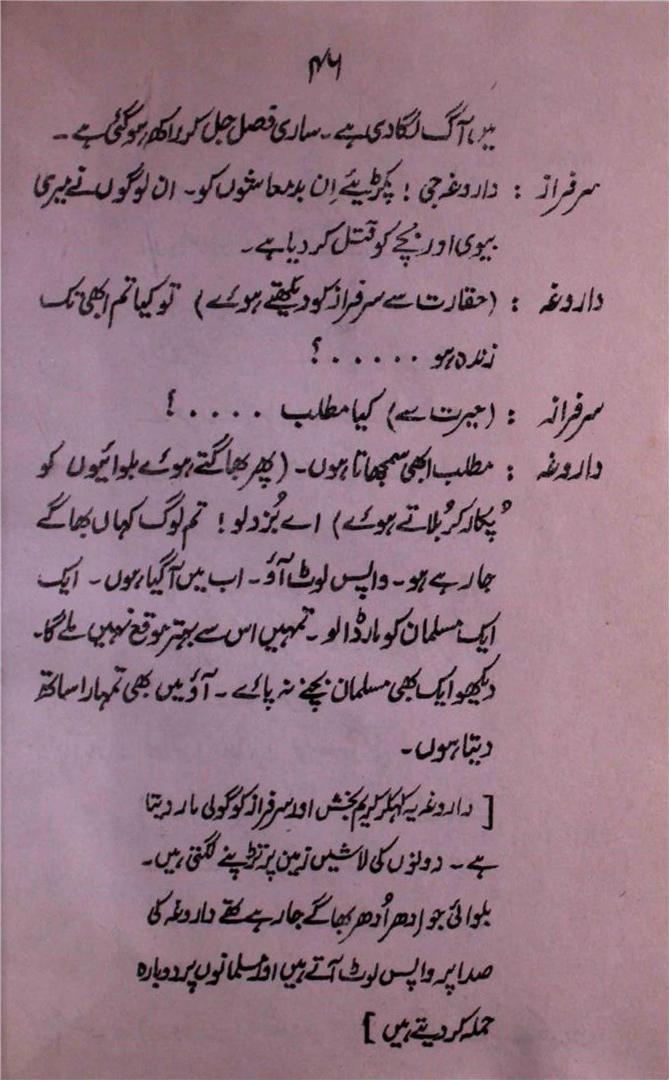 ۴۶
میں آگ لگا دی ہے۔ ساری فصل جل کر راکھ ہو گئی ہے۔
سرفراز : داروغہ جی ! پکڑیئے اِن بدمعاشوں کو۔ ان لوگوں نے میری
بیوی اور بچے کو قتل کر دیا ہے۔
داروغہ : (حقارت سے سرفراز کو دیکھتے ہوئے) تو کیا تم ابھی تک
زندہ ہو ۔۔۔۔۔۔؟
سرفراز : (حیرت سے) کیا مطلب ۔۔۔۔!
داروغہ : مطلب ابھی سمجھاتا ہوں۔ (پھر بھاگتے ہوئے بلوائیوں کو
پُکار کر بُلاتے ہوئے) اے بُزدلو! تم لوگ کہاں بھاگے
جا رہے ہو۔ واپس لوٹ آؤ۔ اب میں آگیا ہوں۔ ایک
ایک مسلمان کو مار ڈالو۔ تمہیں اس سے بہتر موقع نہیں ملے گا۔
دیکھو ایک بھی مسلمان بچنے نہ پائے۔ آؤ میں بھی تمہارا ساتھ
دیتا ہوں۔
[ داروغہ یہ کہکر کریم بخش اور سرفراز کو گولی مار دیتا
ہے۔ دونوں کی لاشیں زمین پر تڑپنے لگتی ہیں۔
بلوائی جو اِدھر اُدھر بھاگے جا رہے تھے داروغہ کی
صدا پر واپس لوٹ آتے ہیں اور مسلمانوں پر دوبارہ
حملہ کر دیتے ہیں ]